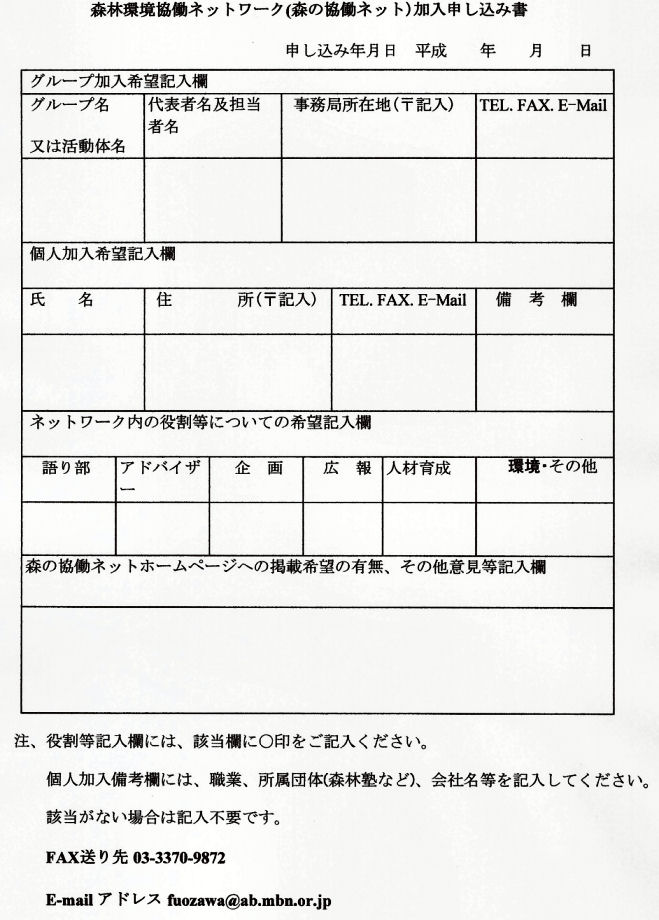 森林環境協働ネットワーク(森の協働ネット)加入申し込み書
申し込み年月日 平成 年 月 日
グループ加入希望記入欄
グループ名
又は活動体名
代表者名及担当
者名
事務局所在地(〒記入)
TEL. FAX. E-Mail
個人加入希望記入欄
氏 名
住 所(〒記入)
TEL. FAX. E-Mail
備 考 欄
ネットワーク内の役割等についての希望記入欄
語り部
アドバイザ
ー
企 画
広 報
人材育成
環境・その他
森の協働ネットホームページへの掲載希望の有無、その他意見等記入欄
注、役割等記入欄には、該当欄に〇印をご記入ください。
個人加入備考欄には、職業、所属団体(森林塾など)、会社名等を記入してください。
該当がない場合は記入不要です。
FAX送り先 03-3370-9872
E-mail アドレス fuozawa@ab.mbn.or.jp